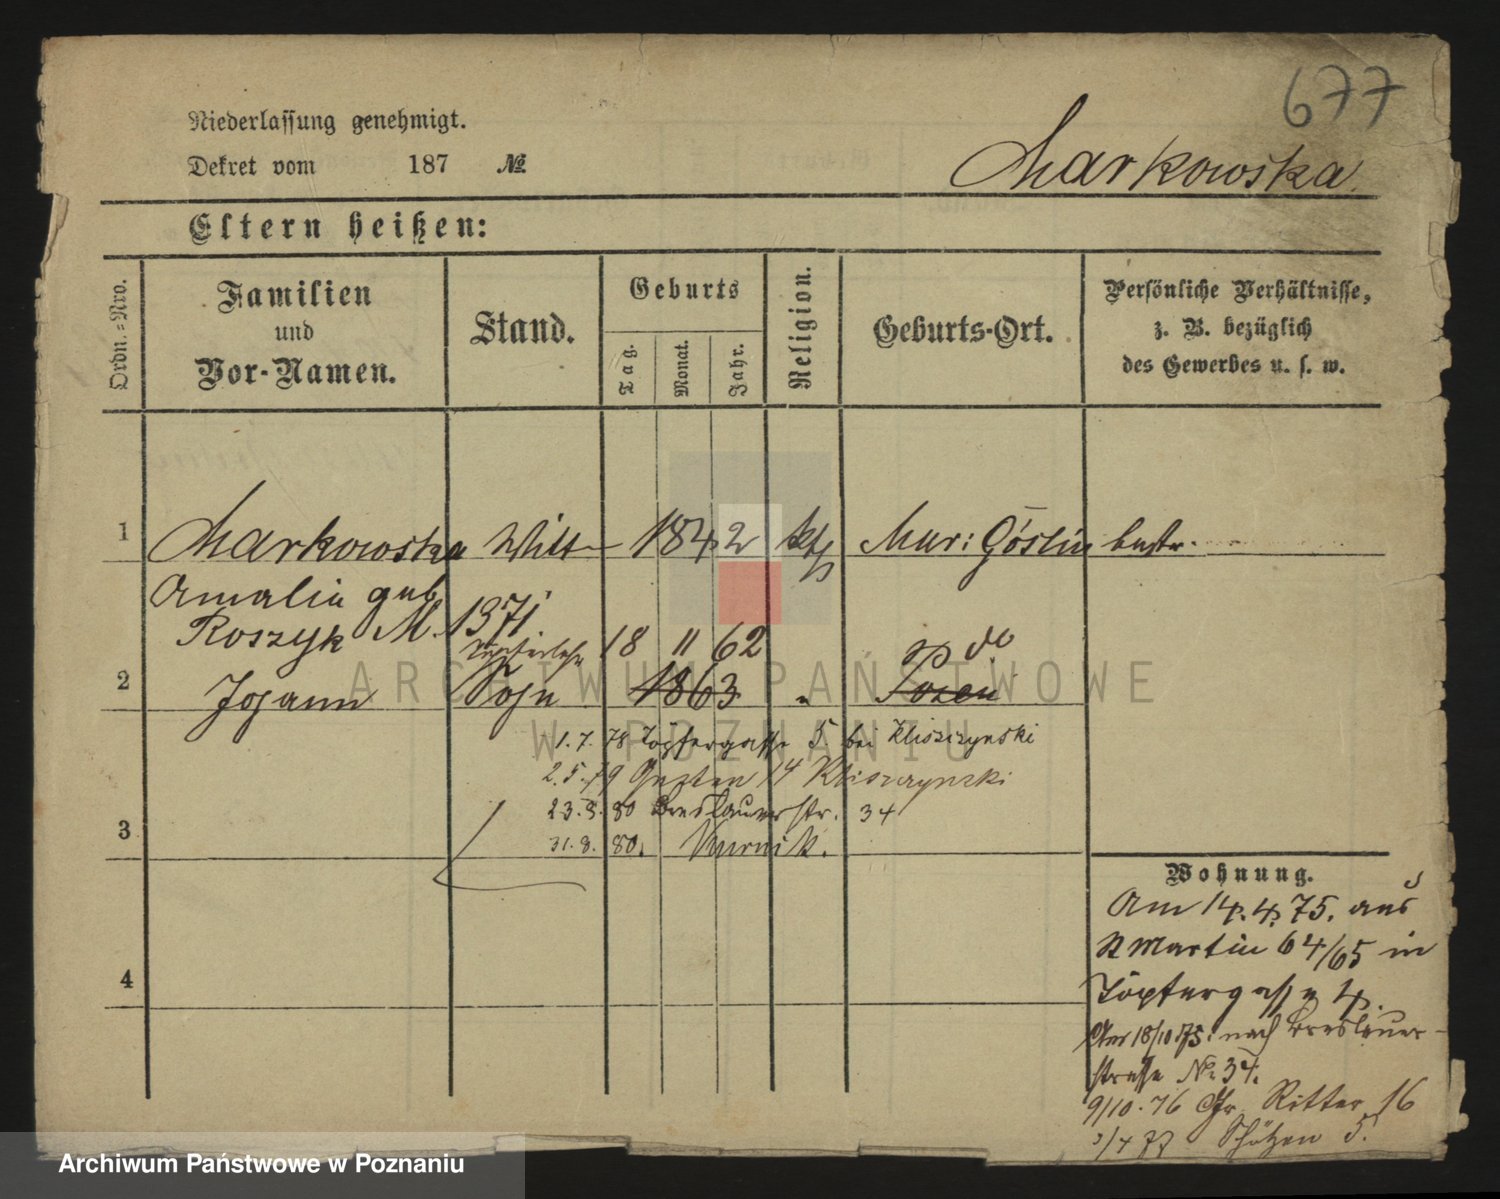 677
Niederlassung genehmigt.
Dekret vom 187 №
Markowska
Eltern heißen:
Ordn.=Nro.
Familien
und
Vor-Namen.
Stand.
Geburts
Tag.
Monat.
Jahr.
Religion.
Geburts-Ort.
Persönliche Verhältnisse,
z. B. bezüglich
des Gewerbes u. s. w.
1 Markowska Witt 1842 kth Mur: Goslin bestr.
Amalie geb
Roszyk M. 1371
18 11 62 do
2 Johann Sohn 1863 " Posen
1.7.78 Töpfergasse 5 bei Kliszczynski
2.5.79 14 Kliszczynski
23.3.80 Breslauerstr. 34
3 31.8.80. Kurnik.
4
Wohnung.
Am 14.4.75. aus
St Martin 64/65 in
Töpfergasse 4.
Am 18/10 75. nach Breslauer-
strasse No 34.
9/10.76 Gr. Ritter 16
3/4 77 Schützen 5.
ARCHIWUM PAŃSTWOWE
W POZNANIU
Archiwum Państwowe w Poznaniu